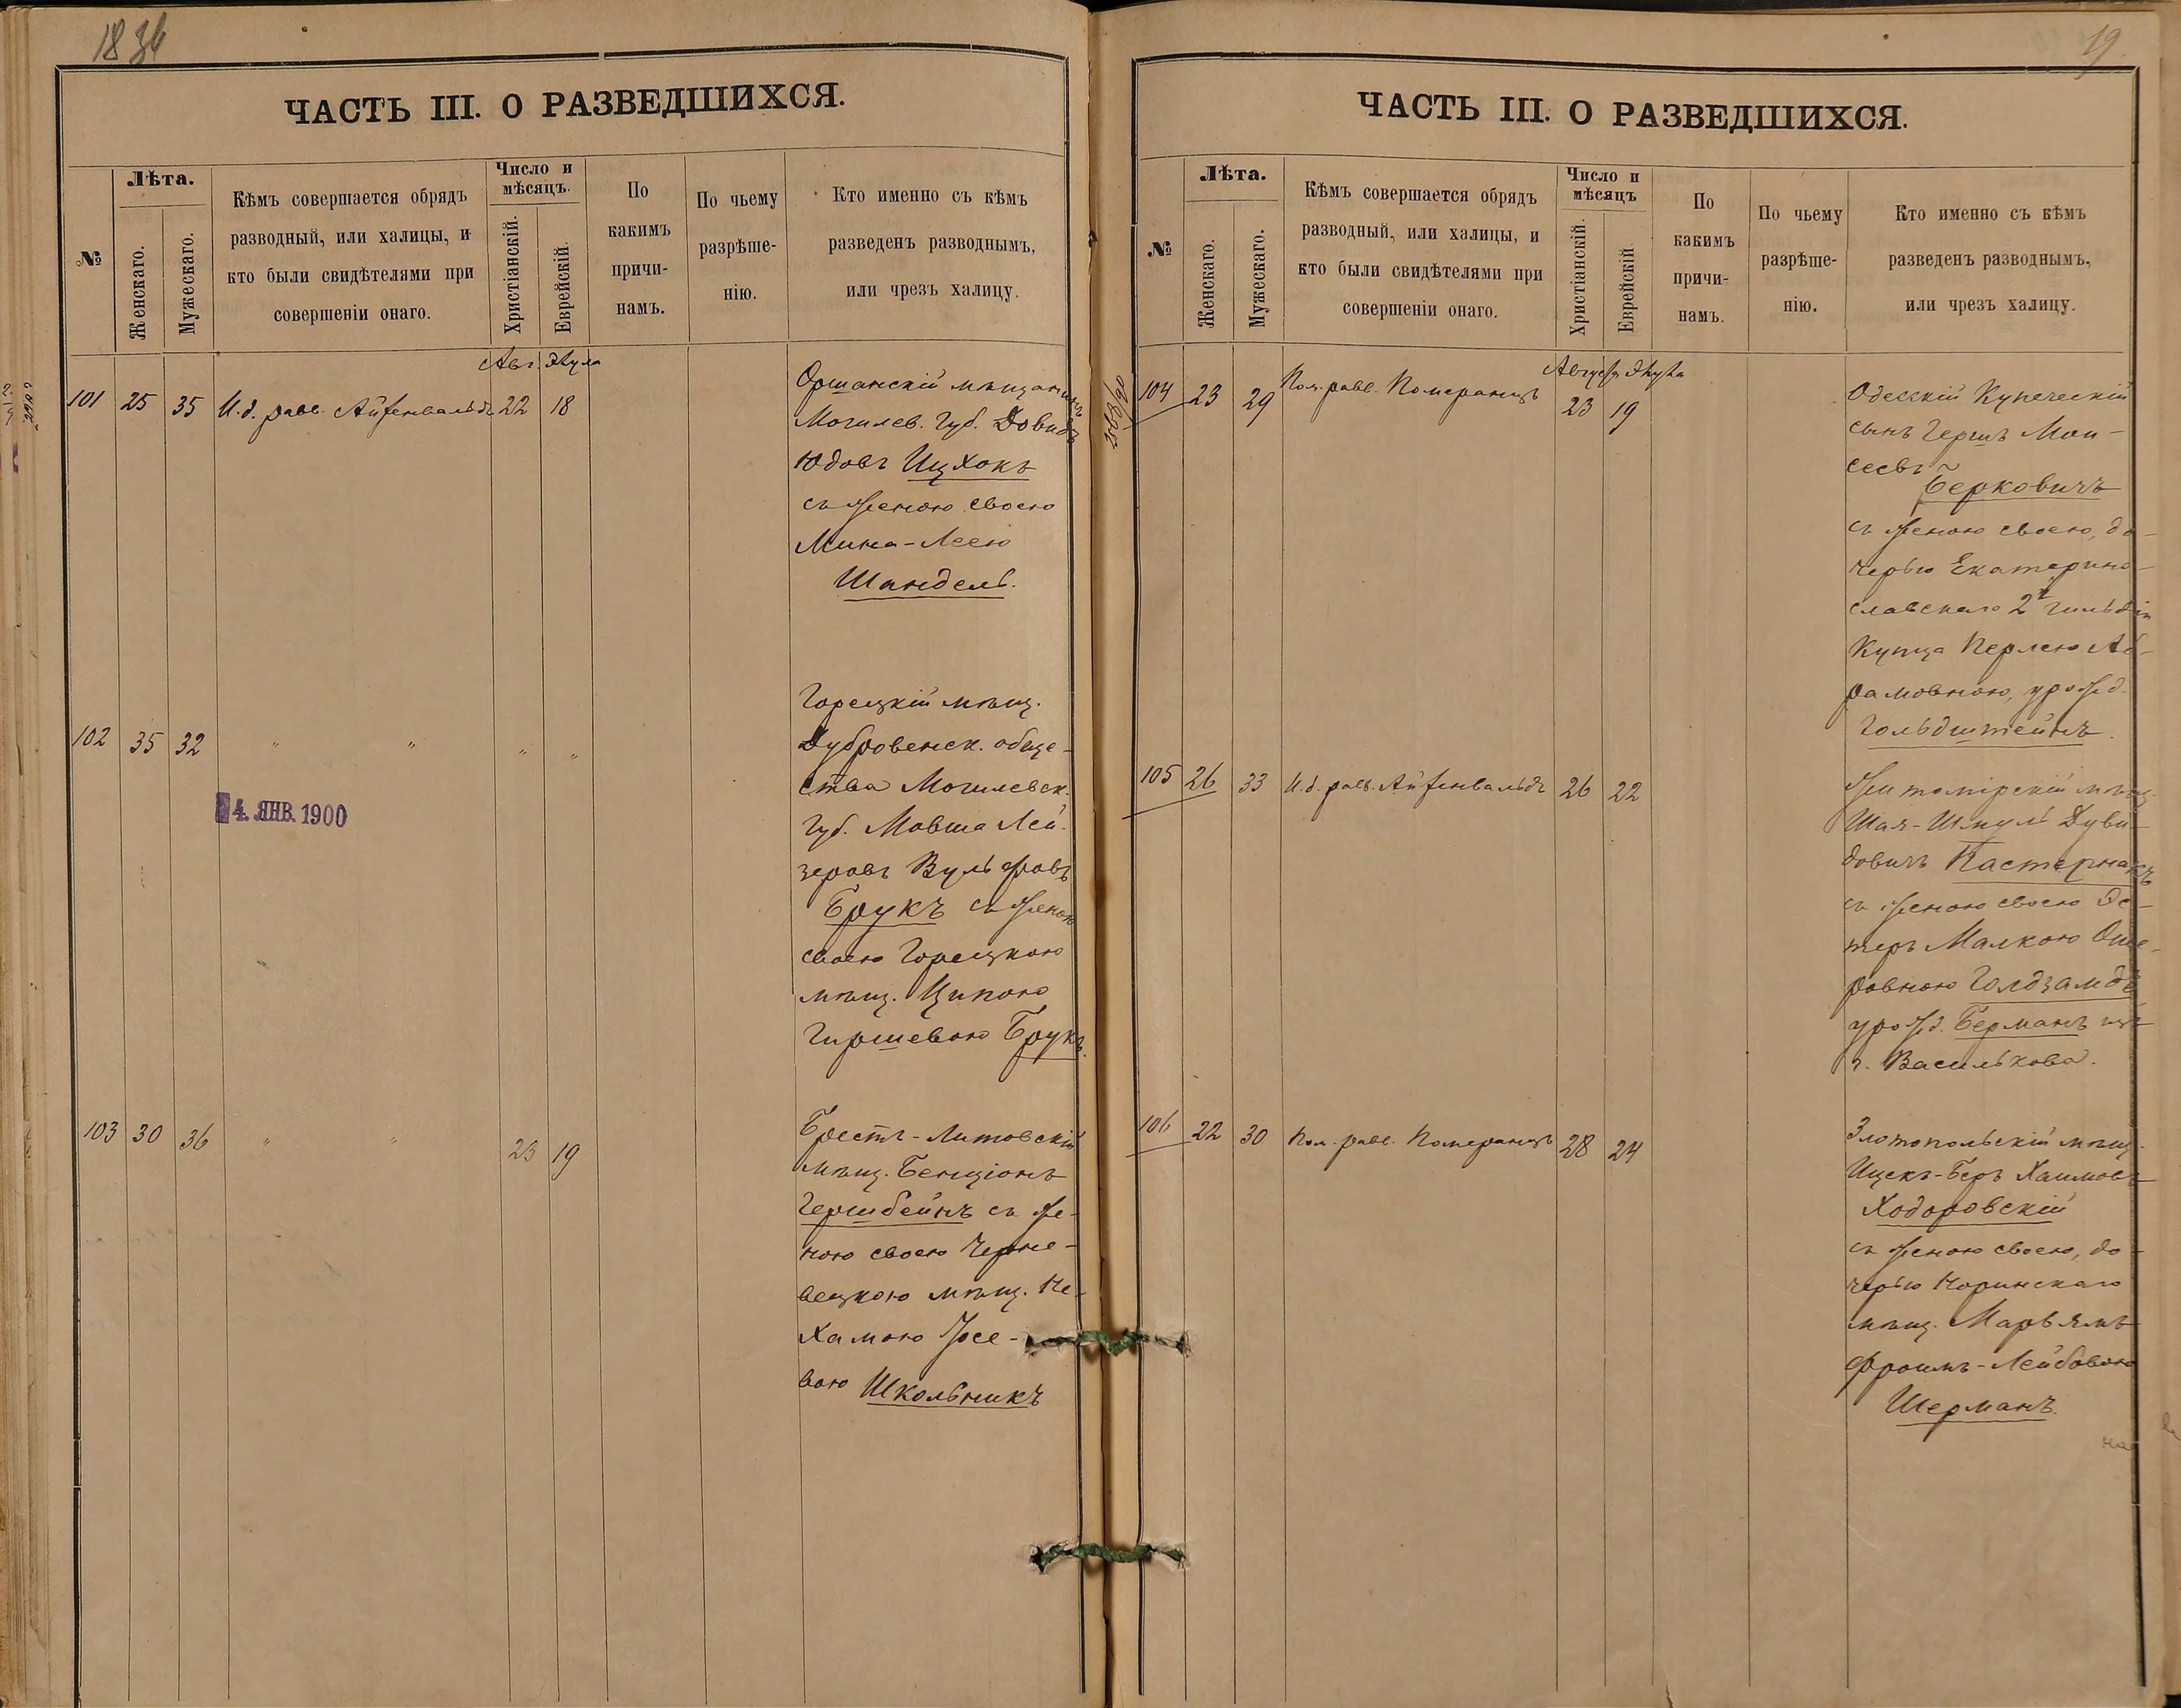 18 34
ЧАСТЬ III. О РАЗВЕДШИХСЯ.
№
Лѣта.
Женскаго.
Мужескаго.
Кѣмъ совершается обрядъ
разводный, или халицы, и
кто были свидѣтелями при
совершеніи онаго.
Число и
мѣсяцъ.
Христіанскій.
Еврейскій.
По
какимъ
причи-
намъ.
По чьему
разрѣше-
нію.
Кто именно съ кѣмъ
разведенъ разводнымъ,
или чрезъ халицу.
Авг. Элула
101 25 35 И.д. равв. Айзенвальдъ 22 18
Оршанскій мѣщанинъ
Могилев. Губ. Довидъ
Юдовъ Ицхокъ
съ женою своею
Мина-Лею
Шандель.
102 35 32 " " " "
Горецкій мѣщ.
Дубровенск. обще-
ства Могилевск.
Губ. Мовша Лей-
зеровъ Вульфовъ
Брукъ съ женою
своею Горецкою
мѣщ. Ципою
Гиршевою Брукъ.
4. ЯНВ. 1900
103 30 36 " " 23 19
Брестъ-Литовскій
мѣщ. Бенціонъ
Гершбейнъ съ же-
ною своею Черне-
вецкою мѣщ. Не-
хамою
вою Школьникъ
19
ЧАСТЬ III. О РАЗВЕДШИХСЯ.
№
Лѣта.
Женскаго.
Мужескаго.
Кѣмъ совершается обрядъ
разводный, или халицы, и
кто были свидѣтелями при
совершеніи онаго.
Число и
мѣсяцъ
Христіанскій.
Еврейскій
По
какимъ
причи-
намъ.
По чьему
разрѣше-
нію.
Кто именно съ кѣмъ
разведенъ разводнымъ,
или чрезъ халицу.
Августъ Элула
104 23 29 Пом. равв. Померанцъ 23 19
Одесскій Купеческій
сынъ Гершъ Мои-
сеевъ
Берковичъ
съ женою своею, до-
черью Екатерино-
славскаго 2й гильдіи
Купца Перлею Аб-
рамовною, урожд.
Гольдштейнъ.
105 26 33 И.д. равв. Айзенвальдъ 26 22
Житомірскій мѣщ.
Шая-Шмуль Дуви-
довичъ Пастернакъ
съ женою своею Эс-
теръ Малкою Оше-
ровною
урожд. Берманъ изъ
г. Василькова.
106 22 30 Пом. равв. Померанцъ 28 24
Златопольскій мѣщ.
Ицекъ-Беръ Хаимовъ
Ходоровскій
съ женою своею, до-
черью Норинскаго
мѣщ. Марьямъ
Фроимъ-Лейбовою
Шерманъ.